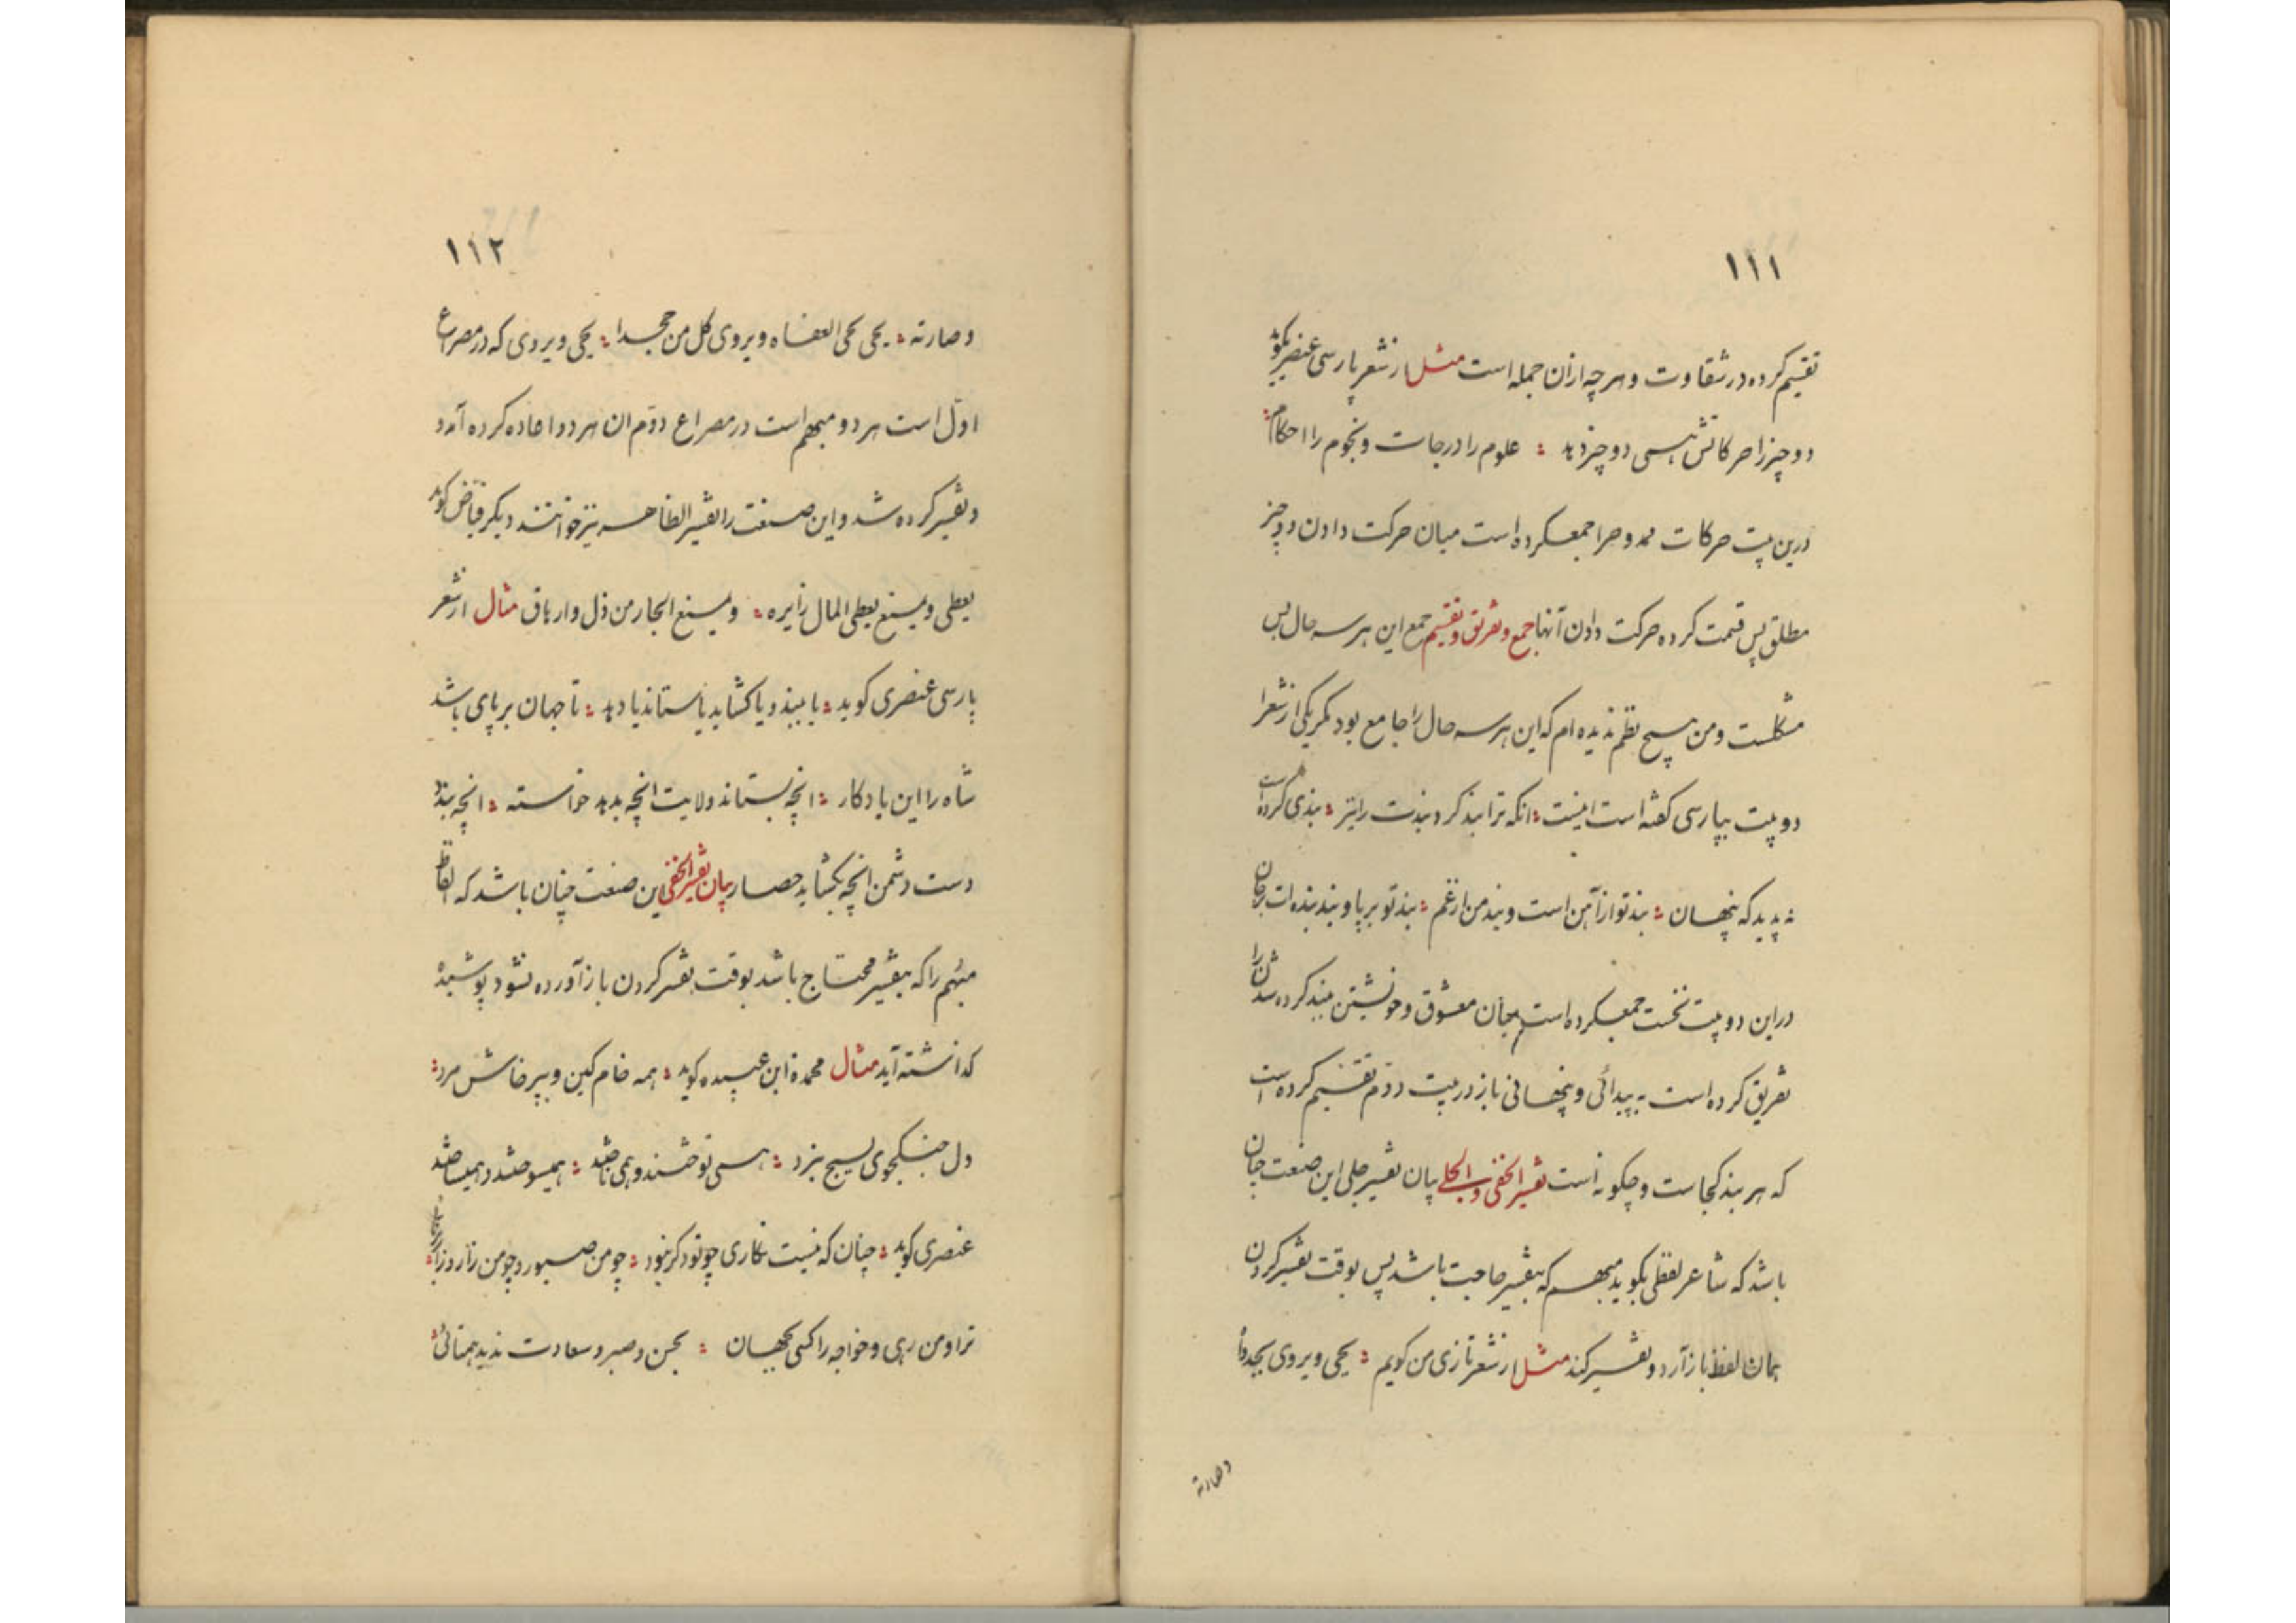 ۱۱۱
تقسیم کرده در شقاوت و هرچه ازان جمله است مثل از شعر پارسی عنصری کوید
دو چیز را حرکاتش همی دو چیز دهد ؛ علوم را درجات و نجوم را احکام ؛
درین بیت حرکات ممدوح را جمعکرده است میان حرکت دادن دو چیز
مطلق پس قسمت کرده حرکت دادن آنها جمع و تفریق و تقسیم جمع این هر سه حال بس
مشکلست و من هیچ نظم ندیده ام که این هر سه حال را جامع بود مکر یکی از شعرا
دو بیت بپارسی کفته است اینست ؛ انکه ترا بند کرد بندت را نیز ؛ بندی کرده است
نه پدید که پنهان ؛ بند تو از آهن است و بند من از غم ؛ بند تو بر پا و بند بنده ات بر جان
در این دو بیت نخست جمعکرده است میان معشوق و خویشتن ببند کرده شدن را
تفریق کرده است به پیدائی و پنهانی باز در بیت دوّم تقسیم کرده است
که هر بند کجاست و چکونه است تفسیر الخفی و الجلی بیان تفسیر جلی این صنعت چنان
باشد که شاعر لفظی بکوید مبهم که بتفسیر حاجت باشد پس بوقت تفسیر کردن
همان لفظ باز آرد و تفسیر کند مثل از شعر تازی من کویم ؛ یحیی و یروی بجدواه
وصارته
۱۱۲
وصارته ؛ یحیی یحیی العفاه و یروی کل من جحدا ؛ یحیی و یروی که در مصراع
اوّل است هر دو مبهم است در مصراع دوّم ان هر دو اعاده کرده آمد
و تفسیر کرده شد و این صنعت را تفسیر الظاهر نیز خوانند دیکر فیّاض کوید
یعطی و یمنع یعطی المال زایره ؛ و یمنع الجار من ذل وارهاق مثال از شعر
پارسی عنصری کوید ؛ یا ببندد یا کشاید یا ستاند یا دهد ؛ تا جهان بر پای باشد
شاه را این یادکار ؛ انچه بستاند ولایت انچه بدهد خواسته ؛ انچه بندد
دست دشمن انچه بکشاید حصار بیان تفسیر الخفی این صنعت چنان باشد که الفاظ
مبهم را که بتفسیر محتاج باشد بوقت تفسیر کردن باز آورده نشود پوشیده
کذاشته آید مثال محمد ابن عبده کوید ؛ همه خام کین و بپرخاش مرد ؛
دل جنکجوی بسیج نبرد ؛
عنصری کوید ؛ چنان که نیست نکاری چو تو دکر نبود ؛ چو من صبور و چو من زار
ترا و من رهی و خواجه را کسی بجهان ؛ بحسن و صبر و سعادت ندید همتائی ؛